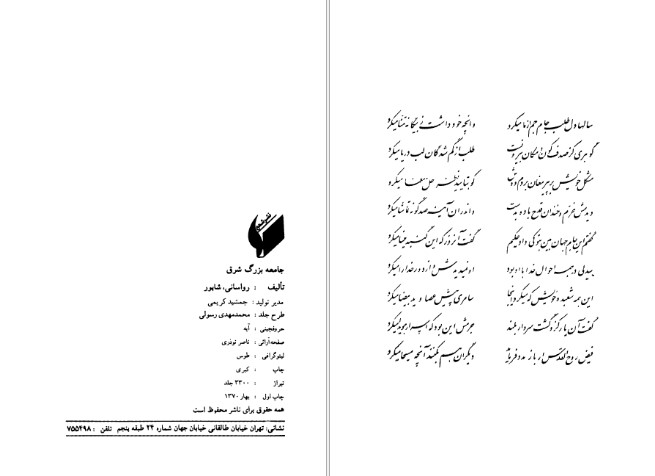 سالها دل طلب جام جم از ما میکرد وانچه خود داشت ز بیگانه تمنا میکرد
گوهری کز صدف کون و مکان بیرونست طلب از گم شدگان لب دریا میکرد
مشکل خویش بر پیر مغان بردم دوش کو بتایید نظر حل معما میکرد
دیدمش خرم و خندان قدح باده بدست واندران آینه صد گونه تماشا میکرد
گفتم این جام جهان بین بتو کی داد حکیم گفت آنروز که این گنبد مینا میکرد
بیدلی در همه احوال خدا با او بود او نمیدیدش و از دور خدا را میکرد
این همه شعبده خویش که میکرد اینجا سامری پیش عصا و ید بیضا میکرد
گفت آن یار کزو گشت سر دار بلند جرمش این بود که اسرار هویدا میکرد
فیض روح القدس ار باز مدد فرماید دیگران هم بکنند آنچه مسیحا میکرد
جامعه بزرگ شرق
تألیف : رواسانی، شاپور
مدیر تولید : جمشید کریمی
طرح جلد : محمدمهدی رسولی
حروفچینی : آبه
صفحه‌آرائی : ناصر نوذری
لیتوگرافی : طوس
چاپ : کبری
تیراژ : ۳۳۰۰ جلد
چاپ اول : بهار ۱۳۷۰
همه حقوق برای ناشر محفوظ است
نشانی: تهران خیابان طالقانی خیابان جهان شماره ۲۴ طبقه پنجم تلفن : ۷۵۵۴۹۸